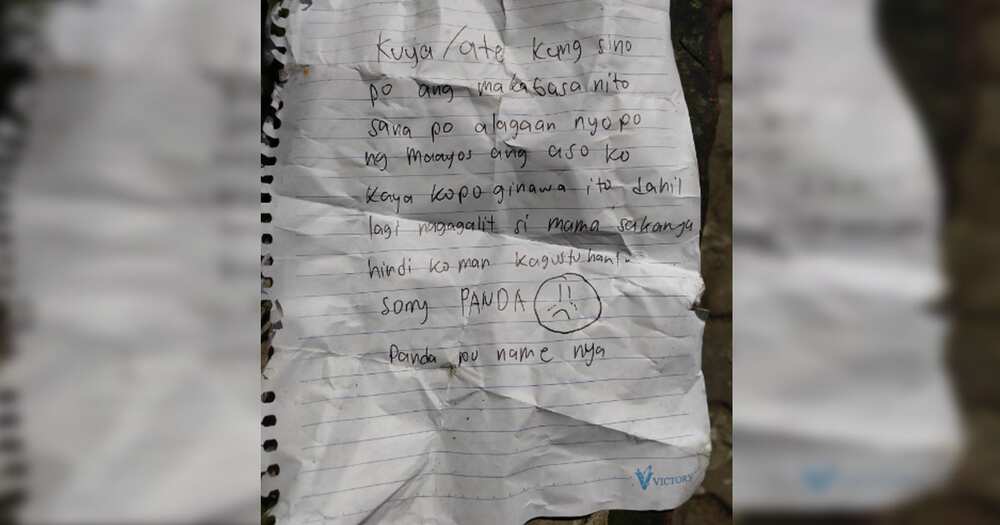 Kuya/ate kung sino
po ang makabasa nito
sana po alagaan nyopo
ng maayos ang aso ko
kaya kopo ginawa ito dahil
lagi nagagalit si mama sakanya
hindi koman kagustuhan
sorry PANDA
Panda po name nya
VICTORY